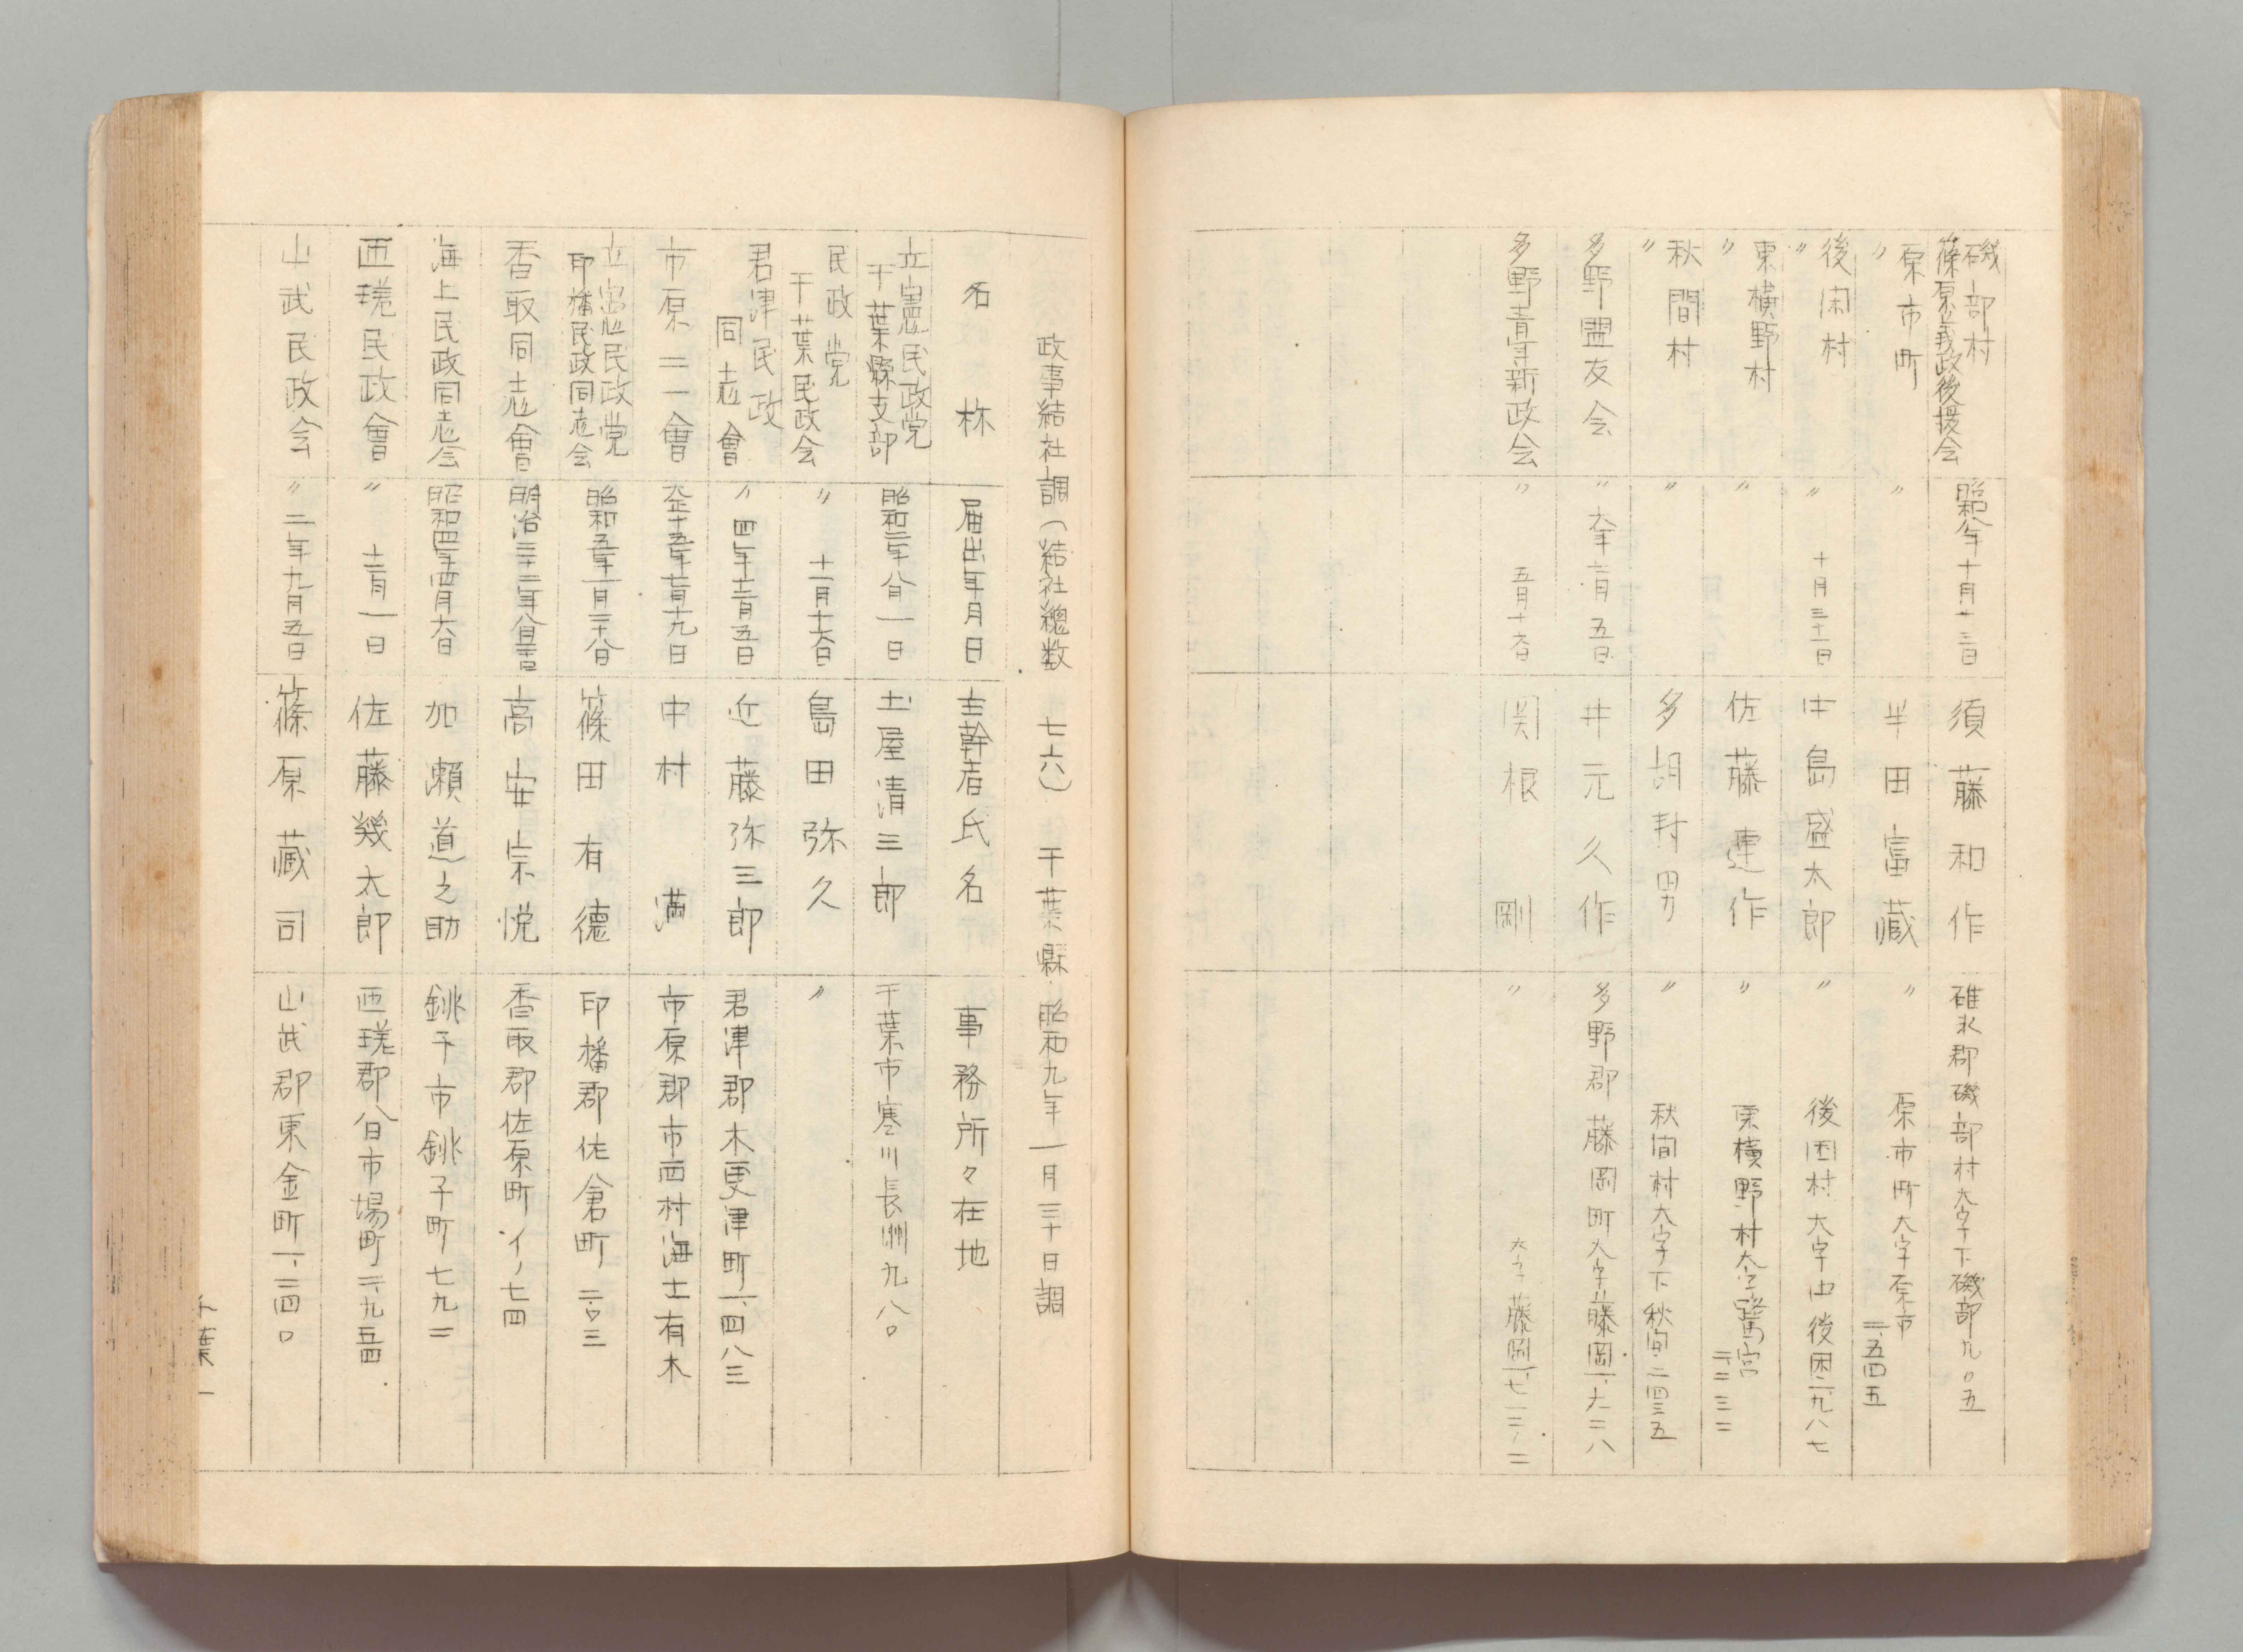 磯部村
篠原義政後援会
昭和八年十月十三日
須藤和作
碓氷郡磯部村大字下磯部九〇五
〃原市町
〃
半田富蔵
〃原市町大字原市
二、五四五
〃後閑村
〃十月三十一日
中島盛太郎
〃後閑村大字中後閑二、九八七
〃東横野村
〃
佐藤連作
〃東横野村大字鷺宮
二、二三二
〃秋間村
〃
多胡封男
〃秋間村大字下秋間二四三五
多野盟友会
〃六年十二月五日
井元久作
多野郡藤岡町大字藤岡一、六三八
多野青年新政会
〃五月十六日
関根剛
〃大字藤岡一、七一三ノ二
政事結社調(結社総数 七六)千葉縣 昭和九年一月三十日調
名称
届出年月日
主幹者氏名
事務所々在地
立憲民政党
千葉縣支部
昭和二年八月一日
土屋清三郎
千葉市寒川長洲九八〇
民政党
千葉民政会
〃十一月十六日
島田弥久
〃
君津民政
同志會
〃四年十二月五日
近藤弥三郎
君津郡木更津町一、四八三
市原二一會
大正十五年七月十九日
中村満
市原郡市西村海士有木
立憲民政党
印旛民政同志会
昭和五年一月二十八日
篠田有徳
印旛郡佐倉町二〇三
香取同志會
明治三十二年八月十五日
高安宗悦
香取郡佐原町イノ七四
海上民政同志会
昭和四年四月六日
加瀬道之助
銚子市銚子町七九二
匝瑳民政會
〃十二月一日
佐藤幾太郎
匝瑳郡八日市場町二、九五四
山武民政会
〃二年九月五日
篠原蔵司
山武郡東金町一、二四〇
千葉一